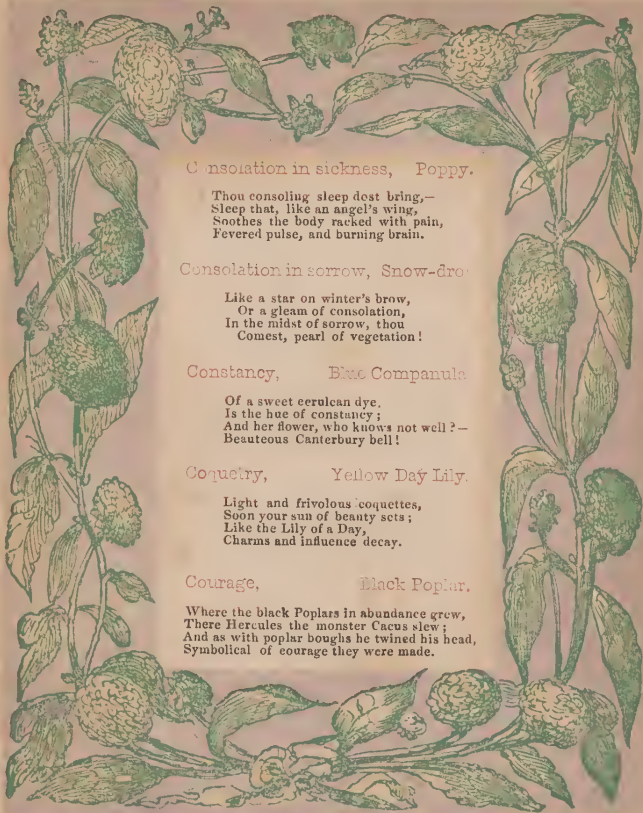 Consolation in sickness, Poppy.
Thou consoling sleep dost bring,—
Sleep that, like an angel's wing,
Soothes the body racked with pain,
Fevered pulse, and burning brain.
Consolation in sorrow, Snow-dro
Like a star on winter's brow,
Or a gleam of consolation,
In the midst of sorrow, thou
Comest, pearl of vegetation!
Constancy, Blue Companula
Of a sweet cerulean dye,
Is the hue of constancy;
And her flower, who knows not well?—
Beauteous Canterbury bell!
Coquetry, Yellow Day Lily.
Light and frivolous coquettes,
Soon your sun of beauty sets;
Like the Lily of a Day,
Charms and influence decay.
Courage, Black Poplar.
Where the black Poplars in abundance grew,
There Hercules the monster Cacus slew;
And as with poplar boughs he twined his head,
Symbolical of courage they were made.